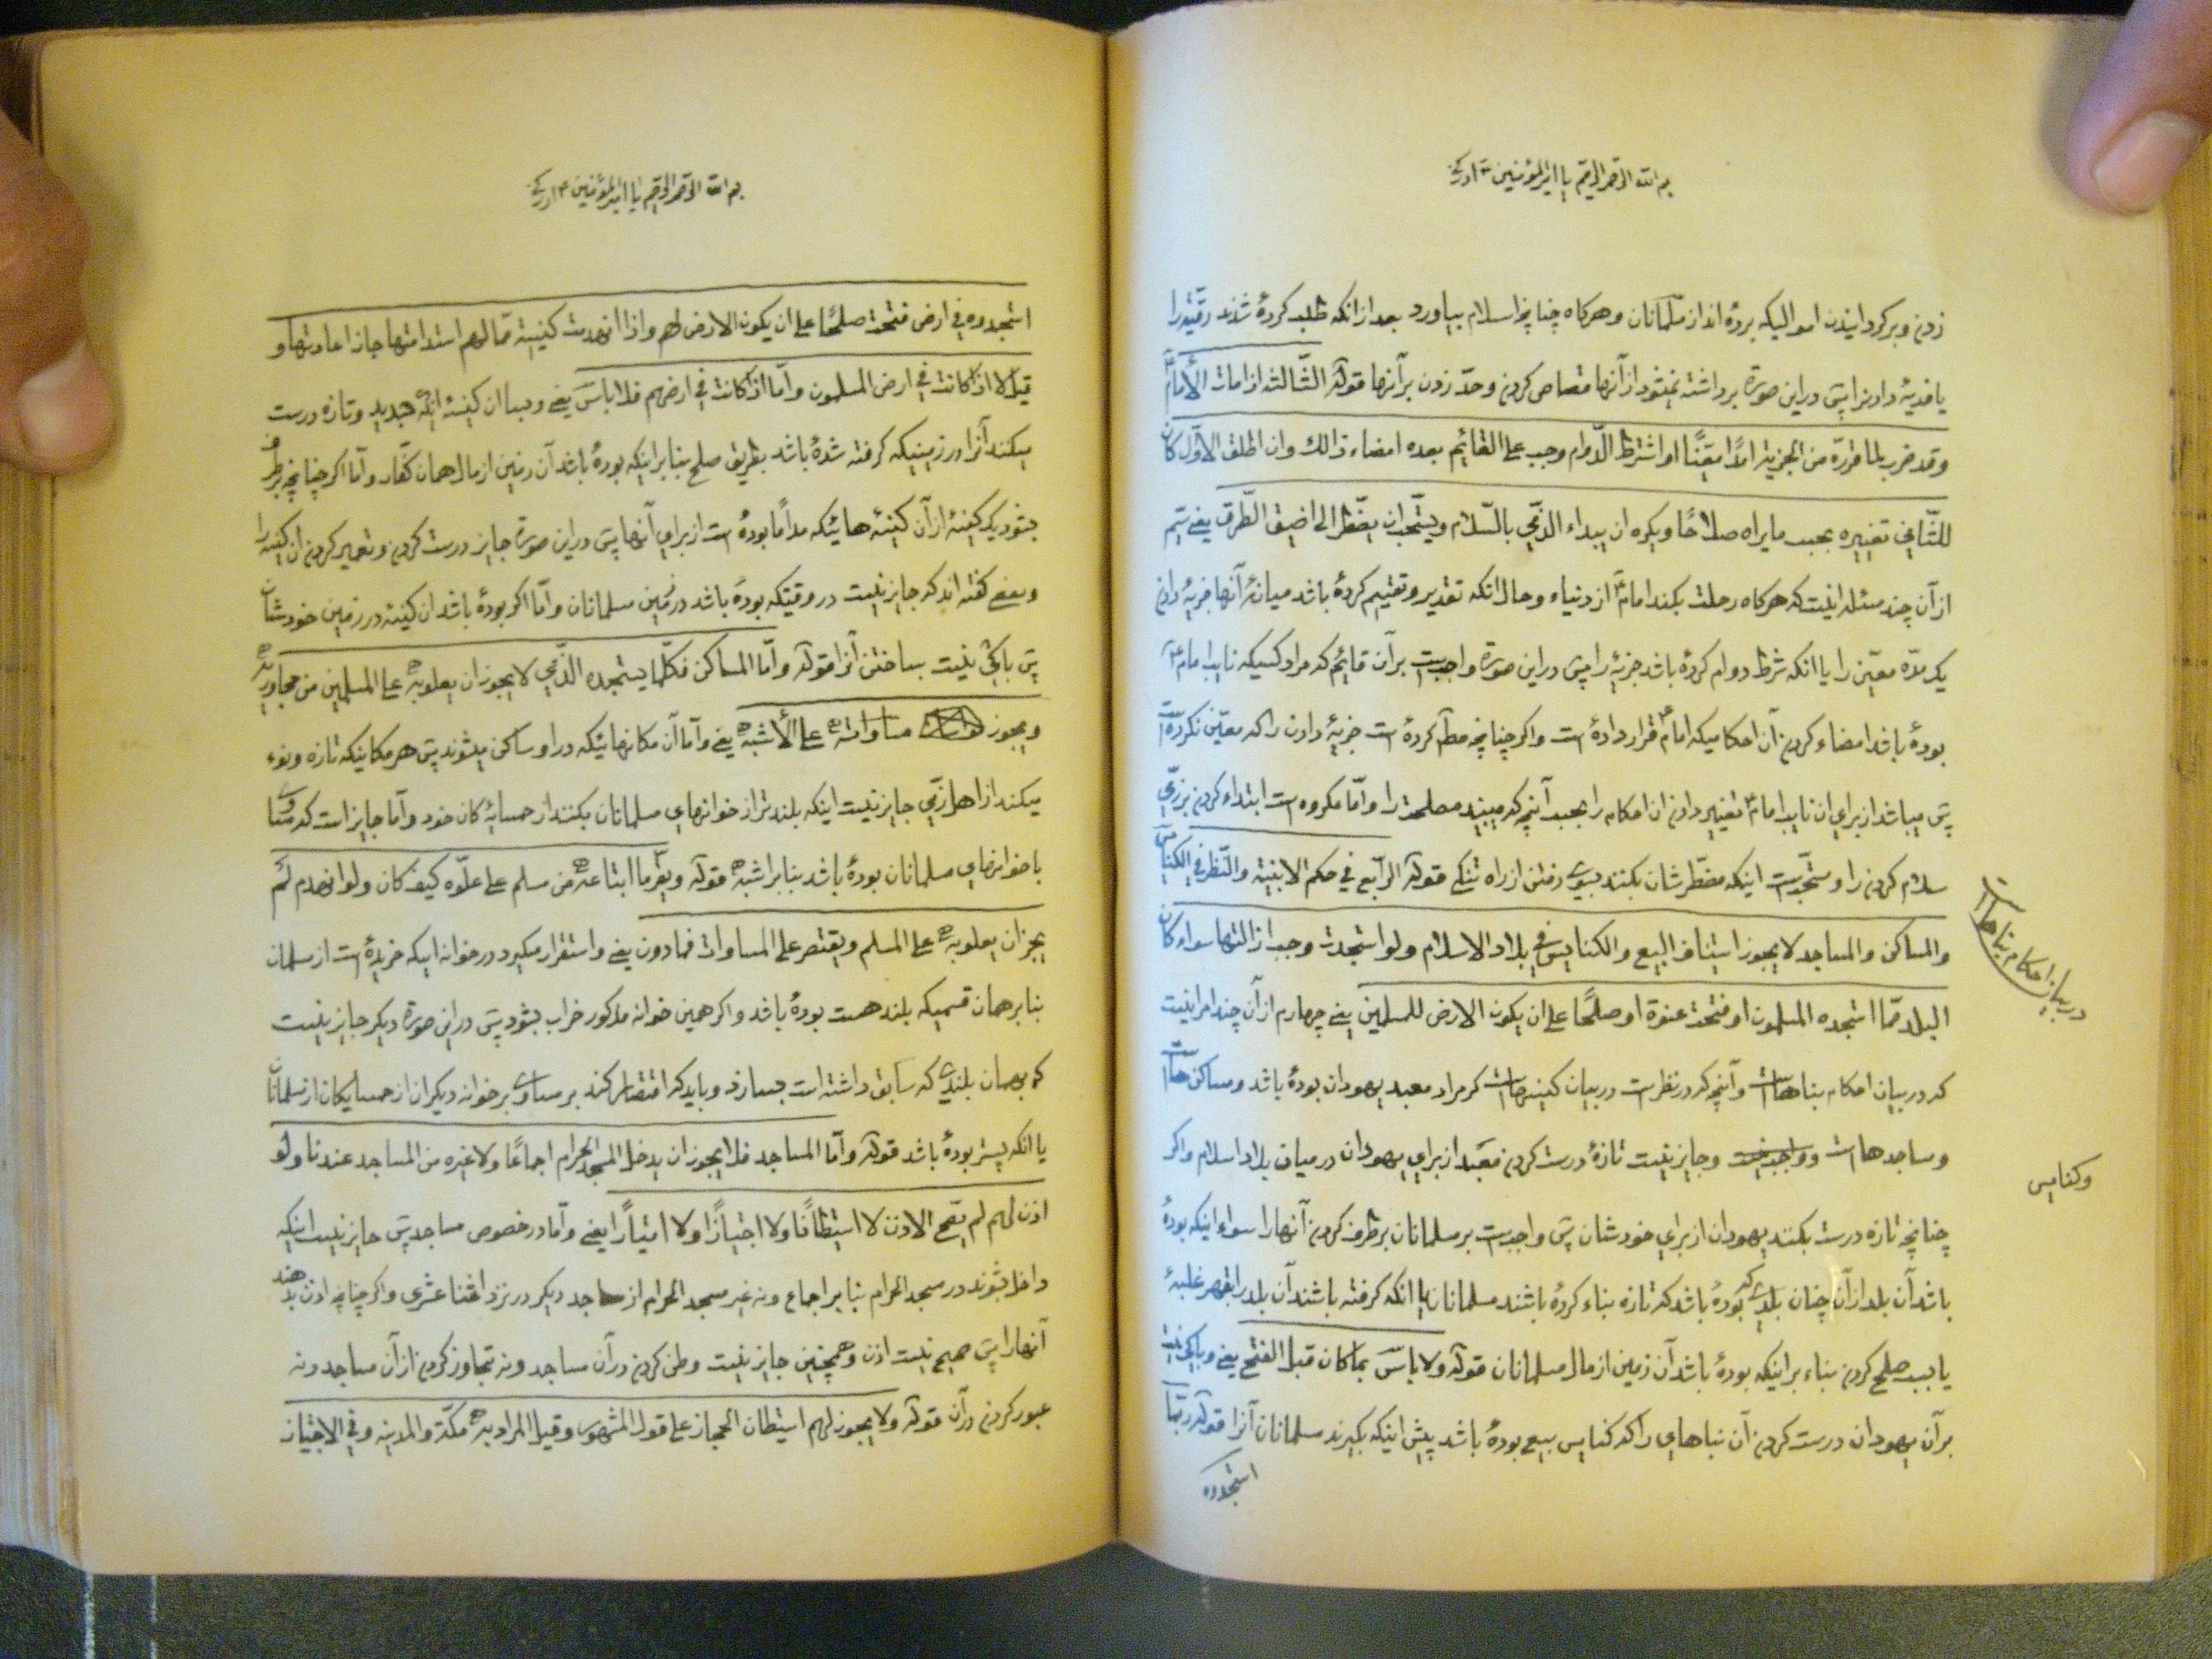 بسم الله الرحمن الرحیم یا امیرالمؤمنین ادرکنی
زدن و برکردانیدن اموالیکه بردهٔ اند از مسلمانان و هرکاه چنانچه اسلام بیاورد بعد از انکه طلب کردهٔ شدند رقیته را
یا فدیهٔ دادنرا پس در این صورة برداشته نمیشود از آنها قصاص کردن و حدّ زدن بر آنها قوله الثّالثه اذا مات الأمام
وقد ضرب لما قرره من الجزیة امدًا معیّنًا او اشترط الدّوام وجب علی القائم بعده امضاء ذالك وان اطلق الاوّل کان
للثّانی تغییره بحسب مایراه صلاحًا ویکره ان یبداء الذّمی بالسّلام ویستحب ان یضطر الی اضیق الطّرق یعنی سیم
از آن چند مسئله اینست که هرکاه رحلت بکند امام از دنیاء و حال انکه تقدیر و تقسیم کردهٔ باشد میانهٔ آنها جزیهٔ دادن
یك مدّة معیّن را یا انکه شرط دوام کردهٔ باشد جزیهٔ را پس در این صورة واجبست بر آن قائم که مراد کسیکه نایب امام
بودهٔ باشد امضاء کردن آن احکامیکه امام قرار دادهٔ است و اکر چنانچه مطلق کردهٔ است جزیهٔ دادن را که معیّن نکردهٔ است
پس میباشد از برای ان نایب امام تغییر دادن ان احکام را بحسب آنچه که میبیند مصلحت را و امّا مکروه ست ابتداء کردن بر ذمّی
سلام کردن را و مستحبّ است اینکه مضطرشان بکنند بسوی رفتن از راه تنکی قوله الرّابع فی حکم الابنیة والنّظر فی الکنایس
والمساکن والمساجد لا یجوز استیناف البیع والکنایس فی بلاد الاسلام ولو استجدت وجب ازالتها سواء کان
البلد ممّا استجده المسلمون او فتحت عنوة او صلحًا علی ان یکون الارض للمسلمین یعنی چهارم از آن چند امر اینست
که در بیان احکام بناهااست و آنچه که در نظرست در بیان کنیسهاست که مراد معبد یهودان بودهٔ باشد و مساکن هااست
و مساجدها است و جایز نیست تازهٔ درست کردن معبد از برای یهودان در میان بلاد اسلام و اکر
چنانچه تازه درست بکنند یهودان از برای خودشان پس واجبست بر مسلمانان برطرف کردن آنهارا سواء اینکه بودهٔ
باشد آن بلد از آن چنان بلدی که بودهٔ باشد که تازه بناء کردهٔ باشند مسلمانان یا انکه کرفته باشند آن بلد را بقهر غلبهٔ
یا بسبب صلح کردن بناء بر اینکه بودهٔ باشد آن زمین از مال مسلمانان قوله ولا باس بما کان قبل الفتح یعنی و باکی نیست
بر آن یهودان درست کردن آن بناهای را که کنایس بیع بودهٔ باشد پیش اینکه بکیرند مسلمانان آنرا قوله وبما
استجدوه
در بیان احکام بناها است
و کنایس
بسم الله الرحمن الرحیم یا امیرالمؤمنین ادرکنی
استجدوه فی ارض فتحت صلحًا علی ان یکون الارض لهم واذا انهدمت کنیسة ممّا لهم استدامتها جاز اعادتها و
قیل لا اذا کانت فی ارض المسلمون وامّا اذا کانت فی ارضهم فلا باس یعنی و بسا ان کنیسهٔ جدید و تازه درست
میکنند آنرا در زمینیکه کرفته شدهٔ باشد بطریق صلح بنابراینکه بودهٔ باشد آن زمین از مال همان کفّار و امّا اکر چنانچه برطرف
بشود یك کنیسهٔ از آن کنیسهٔ هائیکه مدامًا بودهٔ است از برای آنها پس در این صورة جایز درست کردن و تعمیر کردن ان کنیسهٔ را
و بعضی کفته اند که جایز نیست در وقتیکه بودهٔ باشد در زمین مسلمانان و امّا اکر بودهٔ باشد ان کنیسه در زمین خودشان
پس باکی نیست ساختن آنرا قوله وامّا المساکن فکلّما یستجده الذّمی لا یجوز ان یعلو به علی المسلمین من مجاوریه
ویجوز مساواته علی الأشبه یعنی و امّا آن مکانهائیکه در او ساکن میشوند پس هر مکانیکه تازه و نوء
میکنند از اهل ذمّی جایز نیست اینکه بلندتر از خوانهای مسلمانان بکنند از همسایهٔ کان خود و امّا جایز است که مساوی
با خوانهای مسلمانان بودهٔ باشد بنا بر اشبه قوله ویقرّ ما ابتاعه من مسلم علی علوّه کیف کان ولو انهدم لم
یجز ان یعلو به علی المسلم ویقتصر علی المساوات فما دون یعنی و استقرار میکیرد در خوانه ایکه خریدهٔ است از مسلمان
بنا بر همان قسمیکه بلند هست بودهٔ باشد و اکر همین خوانه مذکور خراب بشود پس در این صورة دیکر جایز نیست
که بهمان بلندی که سابق داشته است بسازد و باید که اقتصار کند بر مساوی بر خوانه دیکران از همسایکان از مسلمانان
یا انکه پستر بودهٔ باشد قوله وامّا المساجد فلا یجوز ان یدخل المسجد الحرام اجماعًا ولا غیره من المساجد عندنا ولو
اذن لهم لم یصح الاذن لا استیطانًا ولا اجتیازًا ولا امتیارًا یعنی و امّا در خصوص مساجد پس جایز نیست اینکه
داخل بشوند در مسجد الحرام بنا بر اجماع و نه غیر مسجد الحرام از مساجد دیکر در نزد اثنا عشری و اکر چنانچه اذن بدهند
آنهارا پس صحیح نیست اذن و همچنین جایز نیست وطن کردن در آن مساجد و نه تجاوز کردن از آن مساجد و نه
عبور کردن در آن قوله ولا یجوز لهم استیطان الحجاز علی قول المشهور وقیل المراد به مکّة والمدینه وفی الاجتیاز